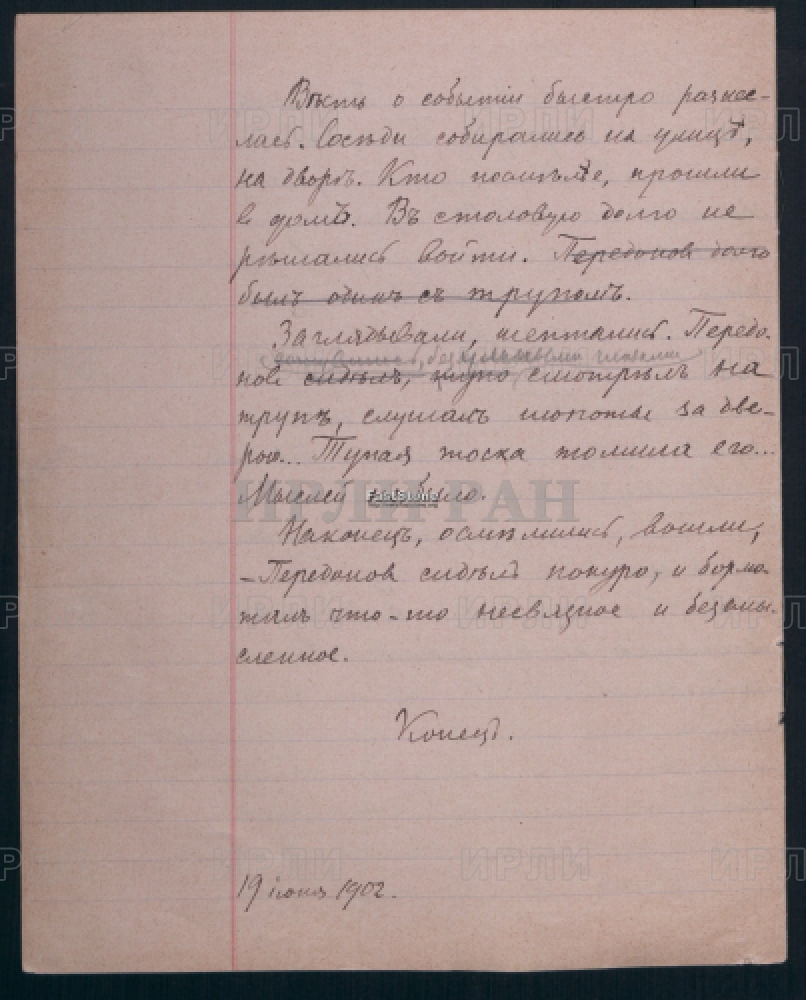 Вѣсть о событіи быстро разнес-
лась. Сосѣди собирались на улицѣ,
на дворѣ. Кто посмѣлѣе, прошли
в домъ. Въ столовую долго не
рѣшались войти. Передонов долго
былъ один съ трупомъ.
Заглядывали, шептались. Передо-
безумными глазами
нов сидѣлъ, тупо смотрѣлъ на
трупъ, слушалъ шопоты за две-
рью... Тупая тоска томила его...
Мыслей не было.
Наконецъ, осмѣлились, вошли,
– Передонов сидѣлъ понуро, и бормо-
талъ что-то несвязное и безсмы-
сленное.
Конецъ.
19 іюня 1902.
ИРЛИ РАН
ИРЛИ